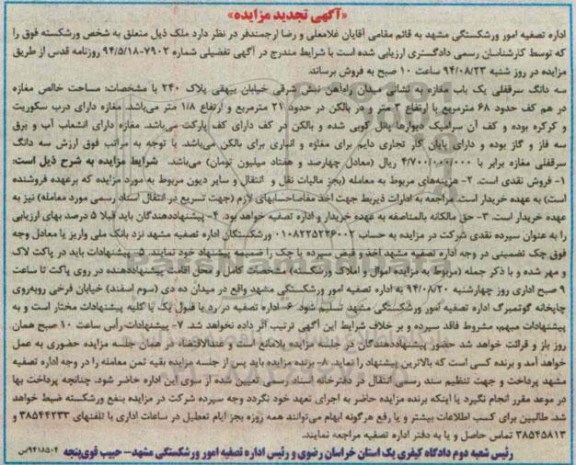 «آگهی تجدید مزایده»
اداره تصفیه امور ورشکستگی مشهد به قائم مقامی آقایان غلامعلی و رضا ارجمندفر در نظر دارد ملک ذیل متعلق به شخص ورشکسته فوق را
که توسط کارشناسان رسمی دادگستری ارزیابی شده است با شرایط مندرج در آگهی تفضیلی شماره ۷۹۰۲-۹۴/۵/۱۸ روزنامه قدس از طریق
مزایده در روز شنبه ۹۴/۰۸/۲۳ ساعت ۱۰ صبح به فروش برساند.
سه دانگ سرقفلی یک باب مغازه به نشانی میدان راه‌آهن نبش شرقی خیابان بیهقی پلاک ۲۴۰ با مشخصات: مساحت خالص مغازه
در هم کف حدود ۶۸ مترمربع با ارتفاع ۳ متر و در بالکن در حدود ۲۱ مترمربع و ارتفاع ۱/۸ متر می‌باشد. مغازه دارای درب سکوریت
و کرکره بوده و کف آن سرامیک دیوارها پنل کوبی شده و بالکن در کف دارای کف پارکت می‌باشد. مغازه دارای انشعاب آب و برق
سه فاز و گاز بوده و دارای پایان کار تجاری دایم برای مغازه و انباری برای بالکن می‌باشد. با توجه به مراتب فوق ارزش سه دانگ
سرقفلی مغازه برابر با ۴/۷۰۰/۰۰۰/۰۰۰ ریال (معادل چهارصد و هفتاد میلیون تومان) می‌باشد. شرایط مزایده به شرح ذیل است:
۱- فروش نقدی است. ۲- هزینه‌های مربوط به معامله (بجز مالیات نقل و انتقال و سایر دیون مربوط به مورد مزایده که برعهده فروشنده
است) به عهده خریدار است. مراجعه به ادارات ذیربط جهت اخذ مفاصاحسابهای لازم (جهت تسریع در انتقال اسناد رسمی مورد معامله) نیز به
عهده خریدار است. ۳- حق مالکانه بالمناصفه به عهده خریدار و اداره تصفیه خواهد بود. ۴- پیشنهاددهندگان باید قبلا ۵ درصد بهای ارزیابی
را به عنوان سپرده نقدی شرکت در مزایده به حساب ۰۱۰۸۲۲۵۲۲۶۰۰۲ ورشکستگان اداره تصفیه مشهد نزد بانک ملی واریز یا معادل وجه
فوق چک تضمینی در وجه اداره تصفیه مشهد اخذ و قبض سپرده یا چک را ضمیمه پیشنهاد خود نمایند. ۵- پیشنهادات باید در پاکت لاک
و مهر شده و با ذکر جمله (مربوط به مزایده اموال و املاک ورشکسته) مشخصات کامل و محل اقامت پیشنهاددهنده در روی پاکت تا ساعت
۹ صبح اداری روز چهارشنبه ۹۴/۰۸/۲۰ به اداره تصفیه امور ورشکستگی مشهد واقع در میدان ده دی (سوم اسفند) خیابان فرخی روبه‌روی
چاپخانه گوتمبرگ اداره تصفیه امور ورشکستگی مشهد تسلیم شود. ۶- اداره تصفیه در رد یا قبول یک یا کلیه پیشنهادات مختار است و به
پیشنهادات مبهم، مشروط فاقد سپرده و بر خلاف شرایط این آگهی ترتیب اثر داده نخواهد شد. ۷- پیشنهادات رأس ساعت ۱۰ صبح همان
روز باز و قرائت خواهد شد حضور پیشنهاددهندگان در جلسه مزایده بلامانع است و عندالاقتضاء در همان جلسه مزایده حضوری به عمل
خواهد آمد و برنده کسی است که بالاترین پیشنهاد را نماید. ۸- برنده مزایده باید پس از جلسه مزایده بقیه ثمن معامله را در وجه اداره تصفیه
مشهد پرداخت و جهت تنظیم سند رسمی انتقال در دفترخانه اسناد رسمی تعیین شده از سوی این اداره حاضر شود. چنانچه پرداخت بها
در موعد مقرر انجام نگیرد یا اینکه برنده مزایده حاضر به اجرای تعهد خود نگردد وجه سپرده شرکت در مزایده بنفع ورشکسته ضبط خواهد
شد. طالبین برای کسب اطلاعات بیشتر و یا رفع هرگونه ابهام می‌توانند همه روزه بجز ایام تعطیل در ساعات اداری با تلفنهای ۳۸۵۴۴۲۳۳ و
۳۸۵۴۵۸۱۳ تماس حاصل و یا به دفتر اداره تصفیه مراجعه نمایند.
رئیس شعبه دوم دادگاه کیفری یک استان خراسان رضوی و رئیس اداره تصفیه امور ورشکستگی مشهد- حبیب قوی‌پنجه
۹۴۱۸۵۰۴/س